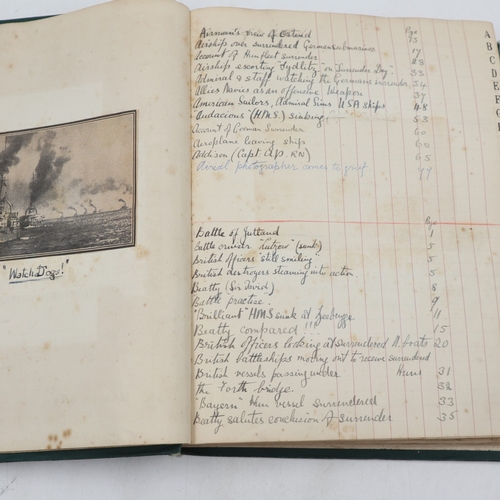 "Watch Dogs!"
Page
Airman's view of Ostend 13
Airships over surrendered German submarines 17
Account of Hun fleet surrender 28
Airship escorting "Sydlitz" on Surrender Day. 33
Admiral & staff watching the Germans surrender 34
Allies Navies as an offensive Weapon 37
American Sailors, Admiral Sims USA ships 48
"Audacious" (H.M.S.) sinking 53
Account of German Surrender 60
Aeroplane leaving ships 60
Atchison (Capt. RN) 65
Aerial photographer comes to grief
Page
Battle of Jutland 1
Battle cruiser (sunk) 5
British Officers "still smiling" 5
British destroyers steaming into action 5
Beatty (Sir David) 8
Battle practise. 9
"Brilliant" HMS sunk at Zeebrugge 11
Beatty compared !!! 15
British Officers looking at surrendered U. boats 20
British battleships moving out to receive surrendered Huns 31
British vessels passing under
the Forth bridge. 32
"Bayern" Hun vessel surrendered 33
Beatty salutes conclusion of surrender 35
A
B
C
D
E
F
G